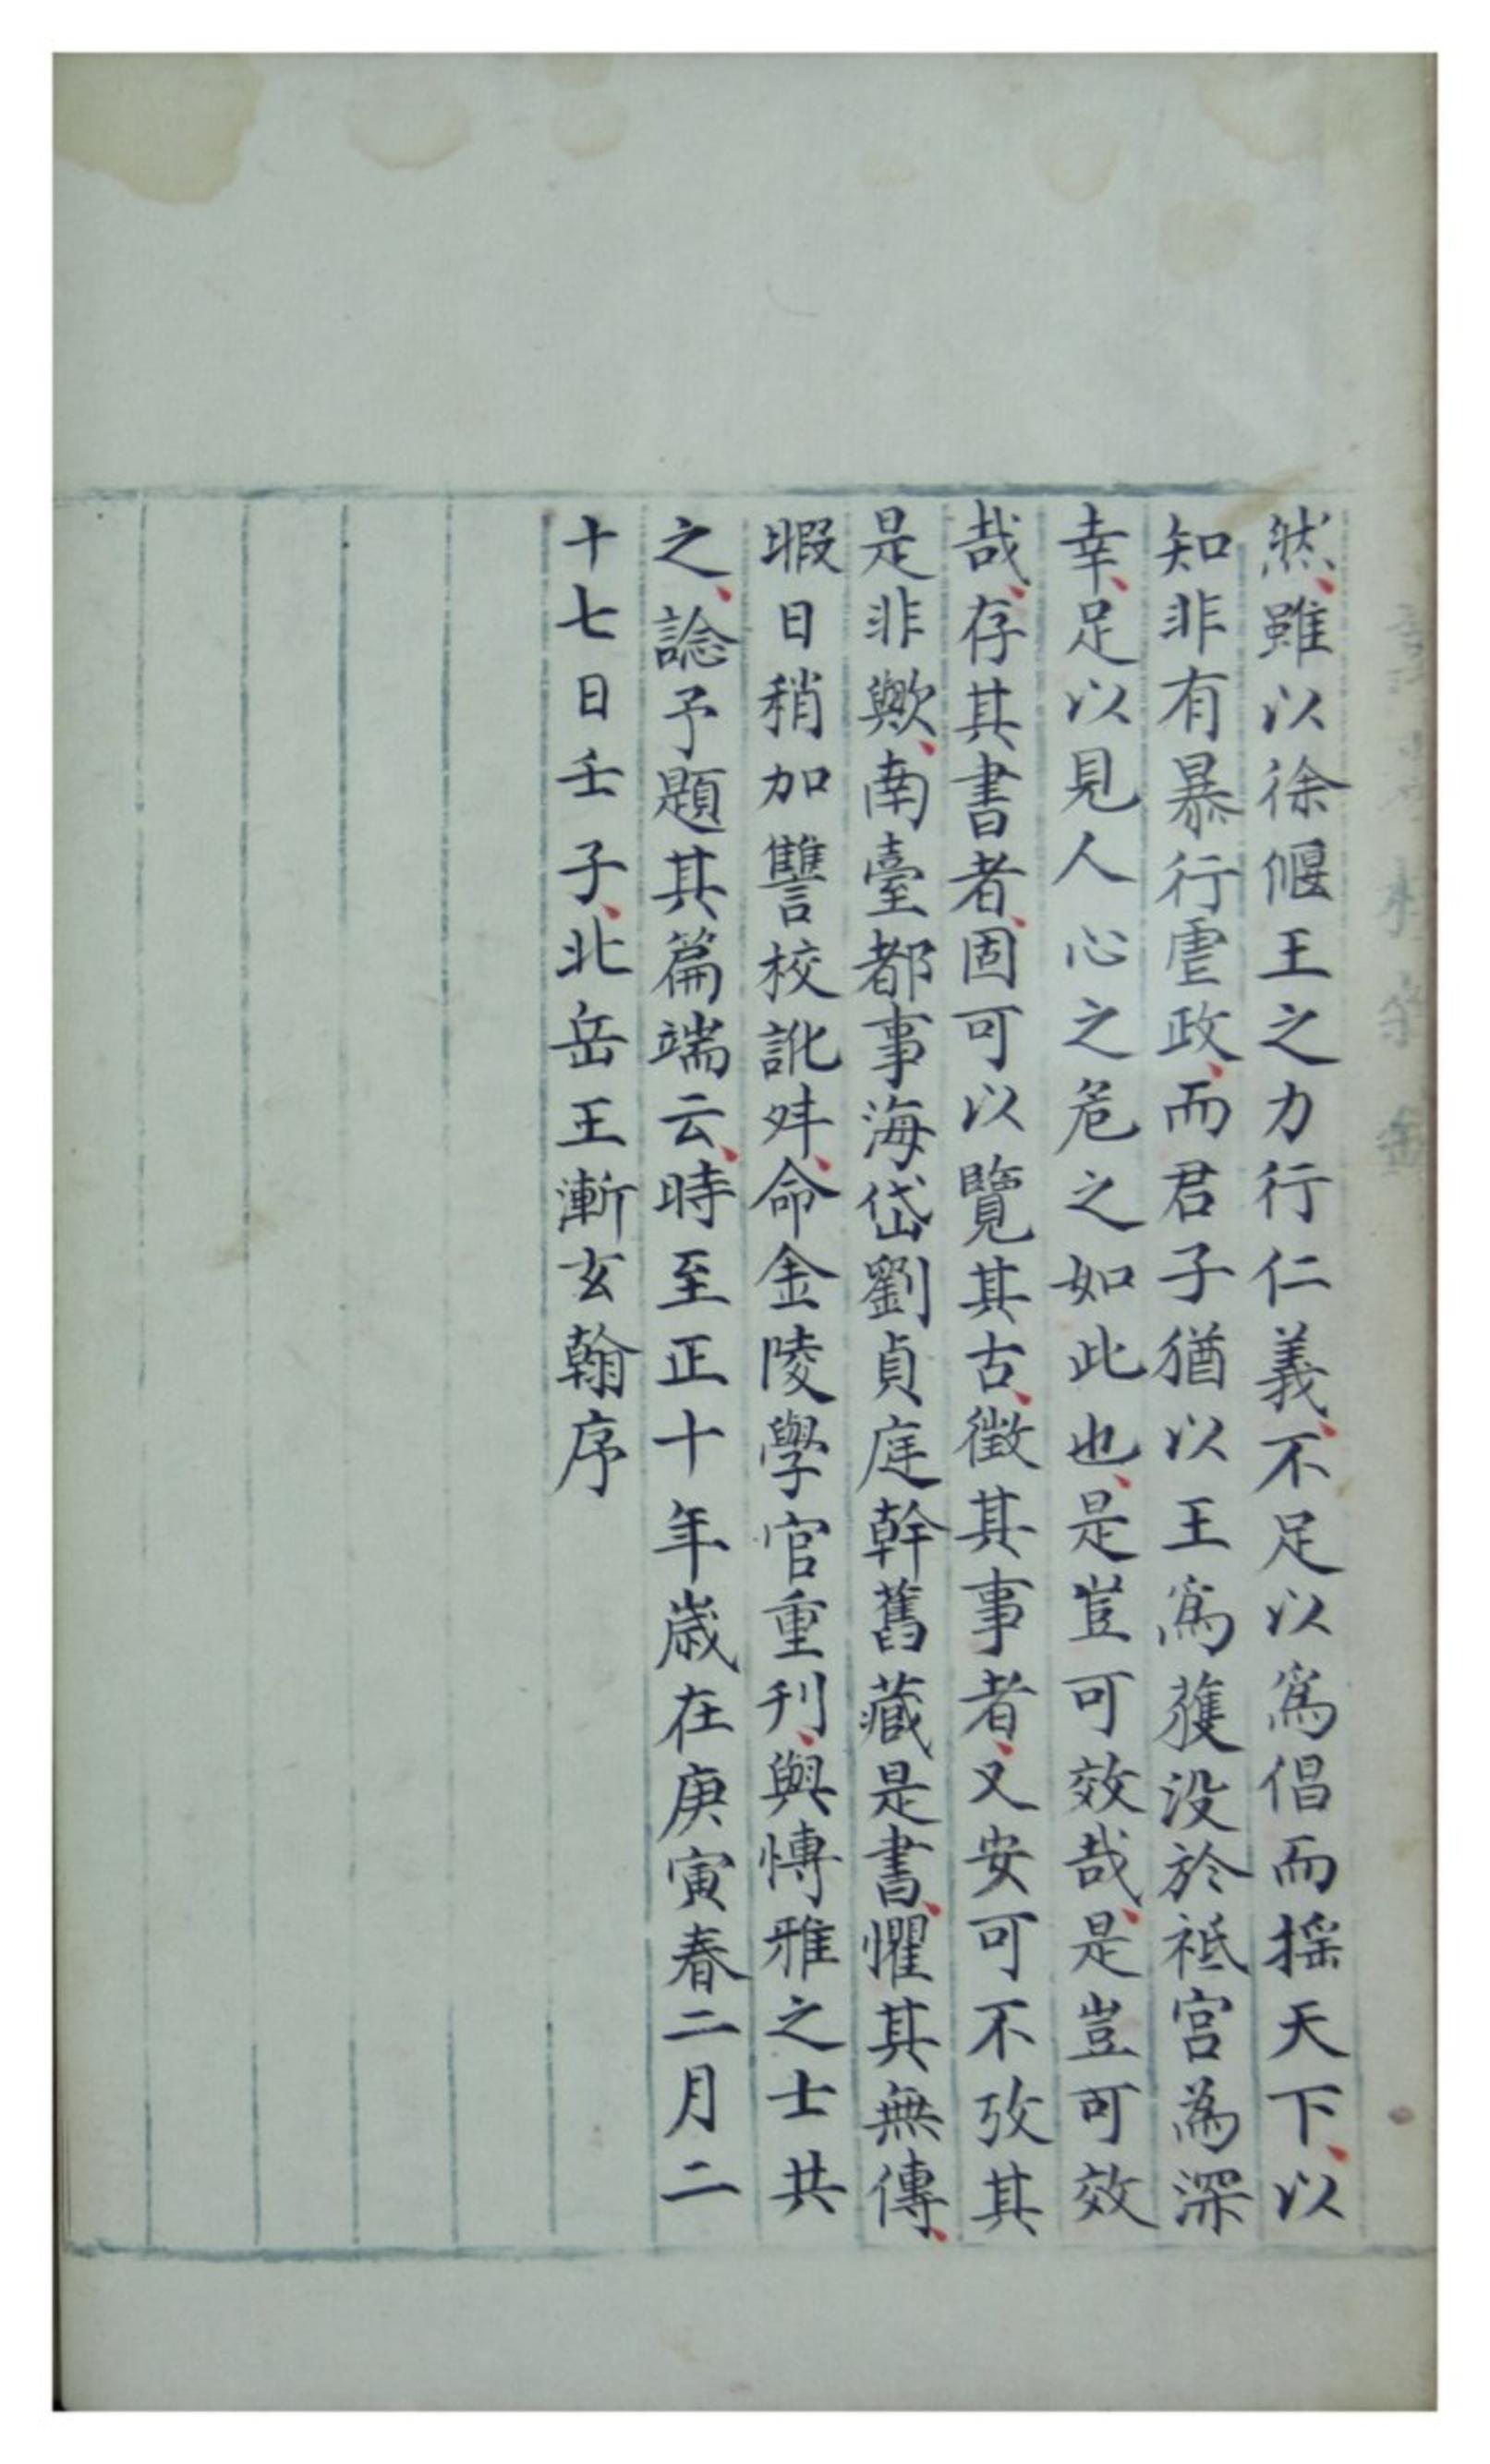 然、雖以徐偃王之力行仁義、不足以爲倡而揺天下、以
知非有暴行虐政、而君子猶以王爲獲没於祗宫為深
幸、足以見人心之危之如此也、是豈可效哉、是豈可效
哉、存其書者、固可以覽其古、徴其事者、又安可不攷其
是非歟、南臺都事海岱劉貞庭幹舊藏是書、懼其無傳、
暇日稍加讐校訛舛、命金陵學官重刊、與愽雅之士共
之、諗予題其篇端云、時至正十年歳在庚寅春二月二
十七日壬子、北岳王漸玄翰序